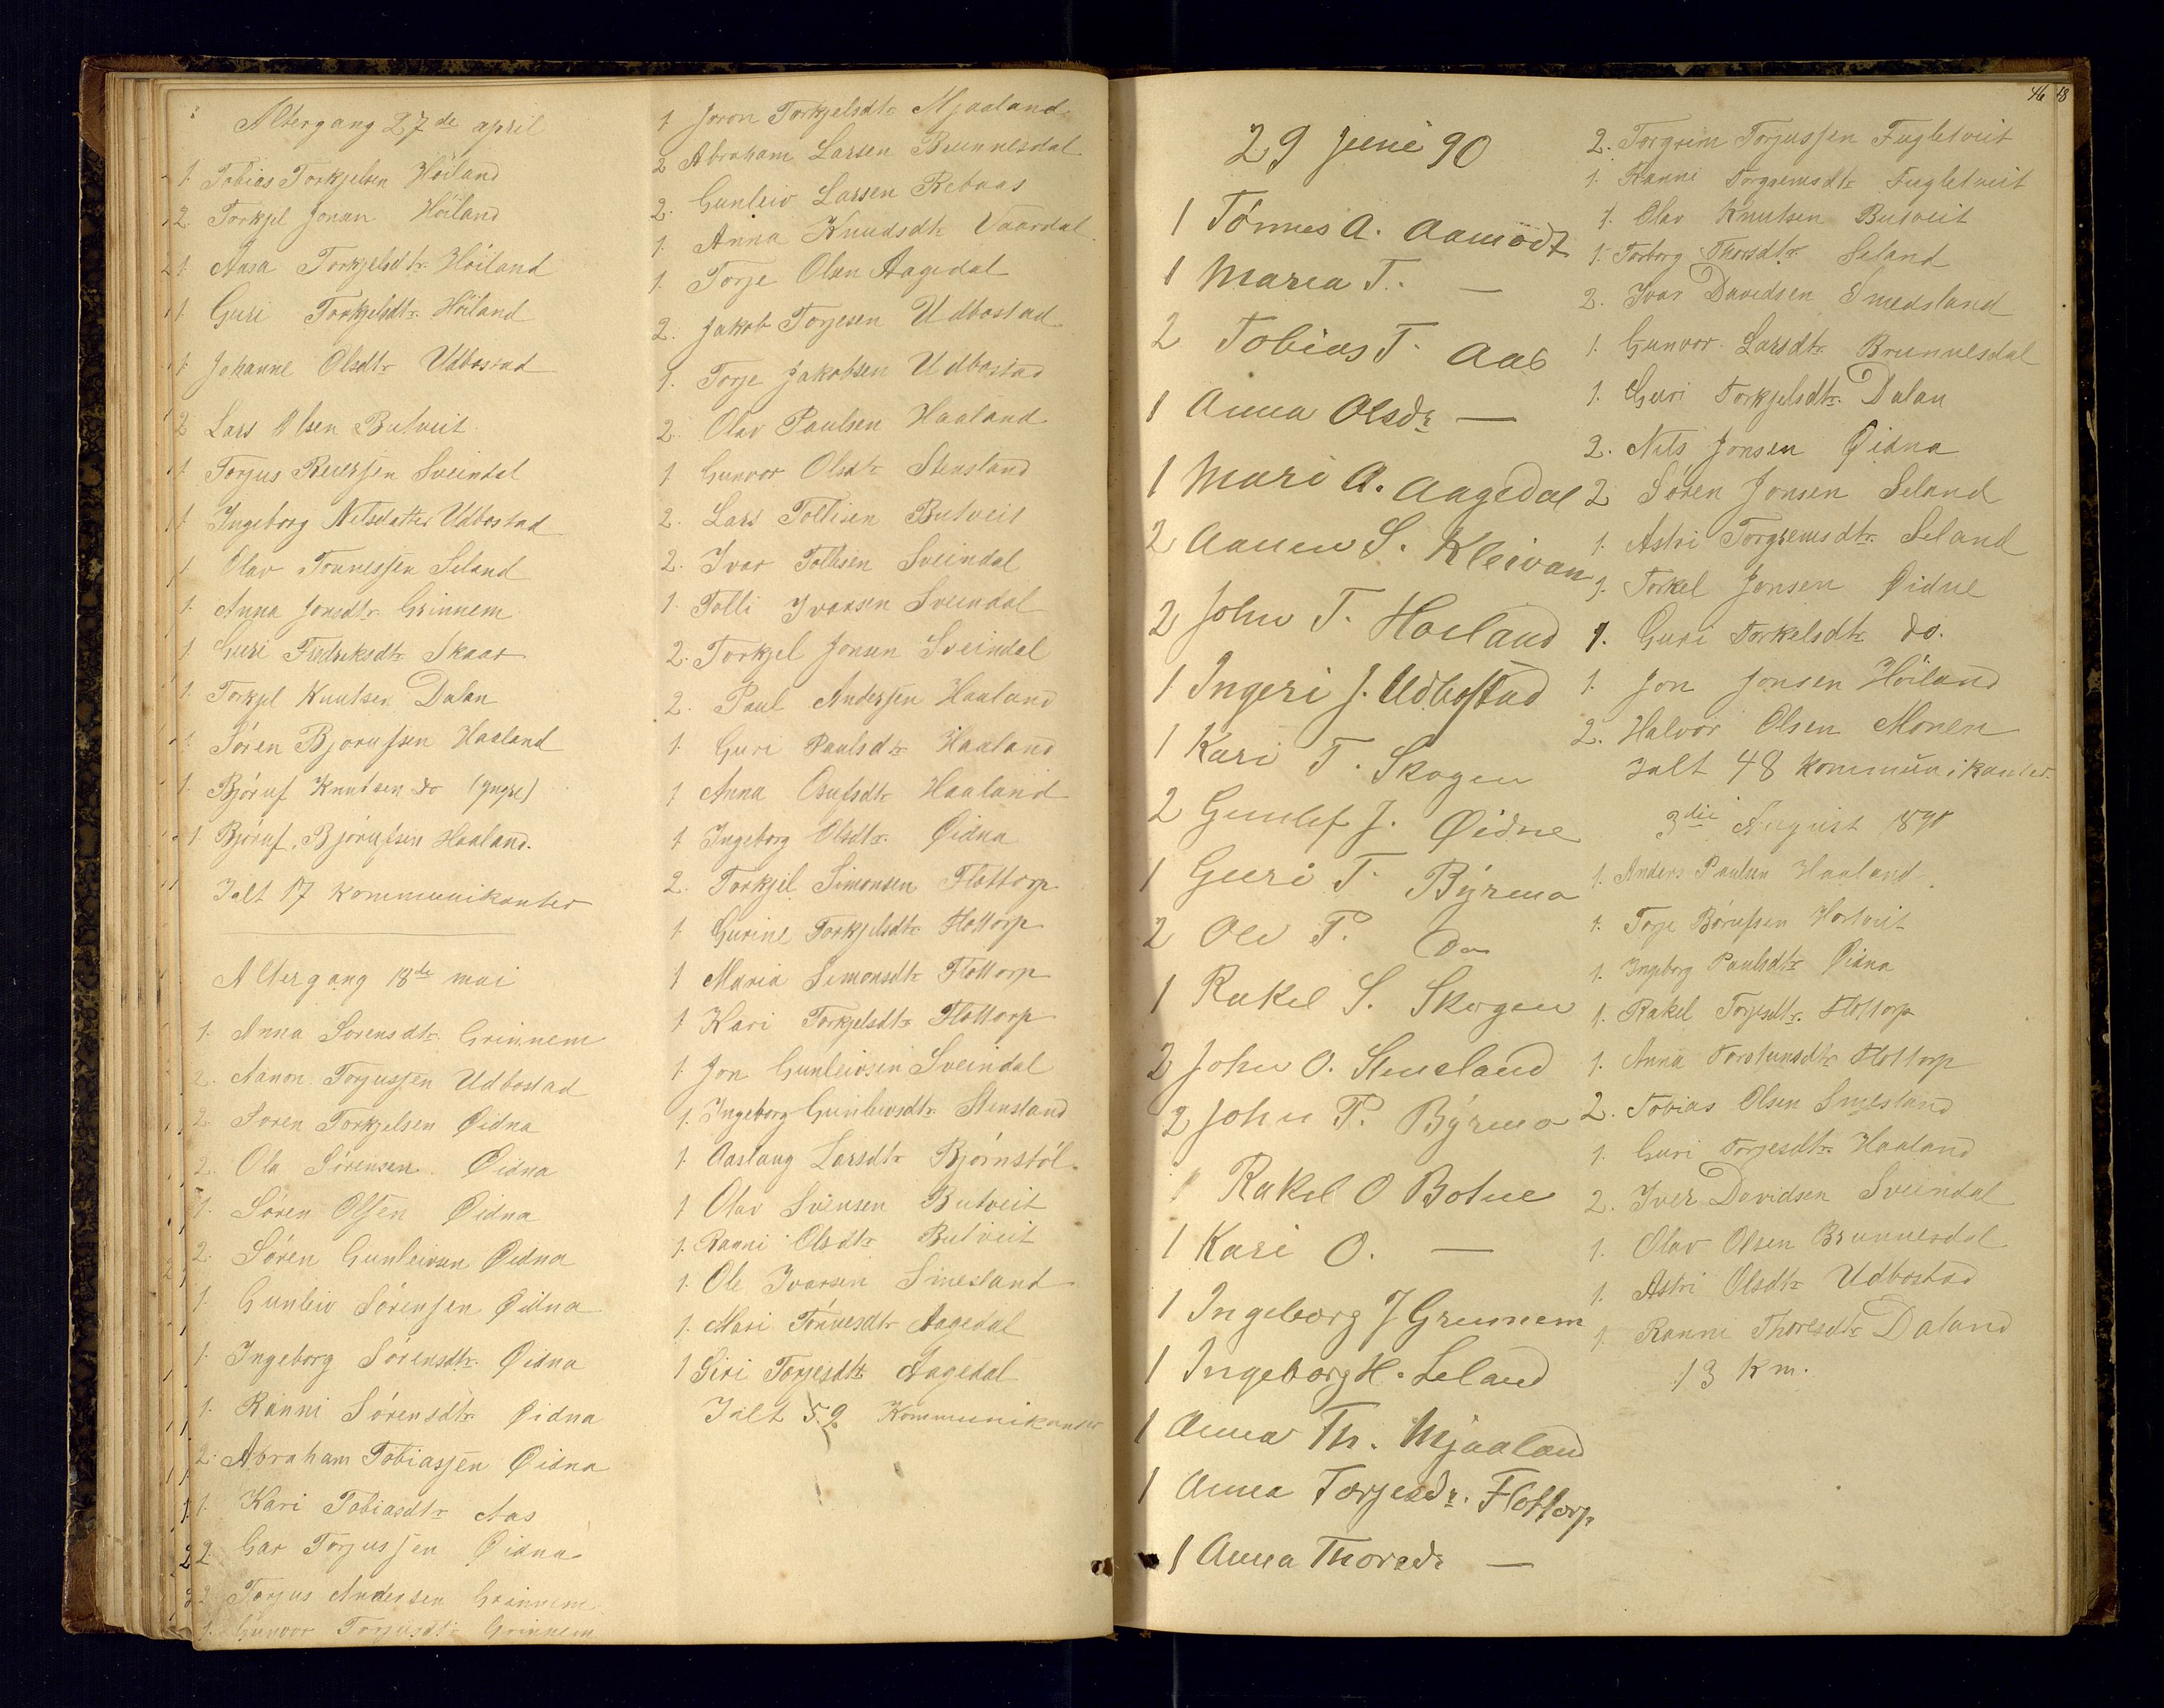 Altergang 27de april
1. Tobias Torkjelsen Höiland
2. Torkjel Jonsen Höiland
1. Aasa Torkjelsdtr. Höiland
1. Guri Torkjelsdtr. Höiland
1. Johanne Olsdtr Udbostad
2 Lars Olsen Butveit
1. Torjus Reiersen Sveindal
1. Ingeborg Nelsdatter Udbostad
1 Olav Tønnessen Seland
1. Anna Jonsdtr. Grinnem
1 Guri Fredriksdtr Skaar
1. Torkjel Knutsen Dalan
1. Sören Bjorufsen Haaland
1. Björuf Knutsen do (yngre)
1. Björuf. Bjørufsen Haaland.
Ialt 17 kommunikanter
Altergang 18de mai
1. Anna Sorensdtr. Grinnem
2. Aanon Torjussen Udbostad
2. Soren Torkjelsen Øidna
2. Ola Sörensen. Øidna
1. Sören Olsen Øidna
2. Sören Gunleivsen Øidna
1. Gunleiv Sörensen Øidna
1. Ingeborg Sörensdtr. Øidna
1. Ranni Sörensdtr. Øidna
2. Abraham Tobiassen Øidna
1. Kari Tobiasdtr Aas
2. Gar Torjussen Øidna
2. Torjus Andersen Grinnem
1. Gunvor Torjusdtr Grinnem
1 Joron Torkjelsdtr Mjaaland
2 Abraham Larsen Brunnesdal
2. Gunleiv Larsen Rebaas
1. Anna Knudsdtr Vaardal
1. Torje Olsen Aagedal
2. Jakob Torjesen Udbostad
1. Torje Jakobsen Udbostad
2. Olav Paulsen Haaland
1 Gunvor Olsdtr Stensland
2. Lars Tollisen Butveit
2. Ivar Tollisen Sveindal
1. Tolli Ivarsen Sveindal
2. Torkjel Jonsen Sveindal
2. Paul Andersen Haaland
1. Guri Paulsdtr Haaland
1 Anna Osufsdtr Haaland
1 Ingeborg Olsdtr. Øidna
2. Torkjel Simonsen Flottorp
1 Gurine Torkjelsdtr Flottorp
1 Maria Simonsdtr Flottorp
1 Kari Torkjelsdtr Flottorp
1. Jon Gunleivsen Sveindal
1. Ingeborg Gunleivsdtr. Stensland
1. Aaslaug Larsdtr Bjørnstöl.
1 Olav Svensen Butveit
1. Ranni Olsdtr Butveit
1. Ole Ivarsen Smesland
1. Mari Tönnesdtr Aagedal
1 Siri Torjesdtr Aagedal
Ialt 52 Kommunikanter
46 48
29 juni 90
1 Tönnes A. Aamodt
1 Maria T. —
2 Tobias T. Aas
1 Anna Olsdr —
1 Mari A. Aagedal
2 Aanen S. Kleivan
2 John T. Hoiland
1 Ingeri J. Udbostad
1 Kari T. Skogen
2 Gunlef J. Øidne
1 Guri T. Byrmo
2 Ole P. Do
1 Rakel S. Skogen
2 John O. Stensland
2 John P. Byrmo
1 Rakel O Botne
1 Kari O. —
1 Ingeborg J Grunnem
1 Ingeborg H. Seland
1 Anna Th. Mjaaland
1 Anna Torjesdr. Flottorp
1 Anna Thorsdr —
2. Torgrim Torjussen Fugletveit
1. Ranni Torgremsdtr Fugletveit
1. Olav Knutsen Butveit
1. Torborg Thorsdtr. Seland
2. Ivar Davidsen Smedsland
1. Gunvor Larsdtr. Brunnesdal
1. Guri Torkjelsdtr. Dalan
2. Nils Jonsen Øidna
2 Sören Jonsen Seland
1. Astri Torgremsdtr. Seland
1. Torkel Jonsen Øidne
1. Guri Torkelsdtr do.
1. Jon Jonsen Höiland
2. Halvor Olsen Monen
Ialt 48 kommunikanter.
3die August 1890
1. Anders Paulsen Haaland
1. Torje Börufsen Hortveit
1. Ingeborg Paulsdtr Øidna
1. Rakel Torjesdtr. Flottorp
1. Anna Torsteinsdtr Flottorp
2. Tobias Olsen Smesland
1. Guri Torjesdtr Haaland
2. Iver Davidsen Sveindal
1. Olav Olsen Brunnesdal
1. Astri Olsdtr Udbostad
1. Ranni Thoresdtr Daland
13 km.